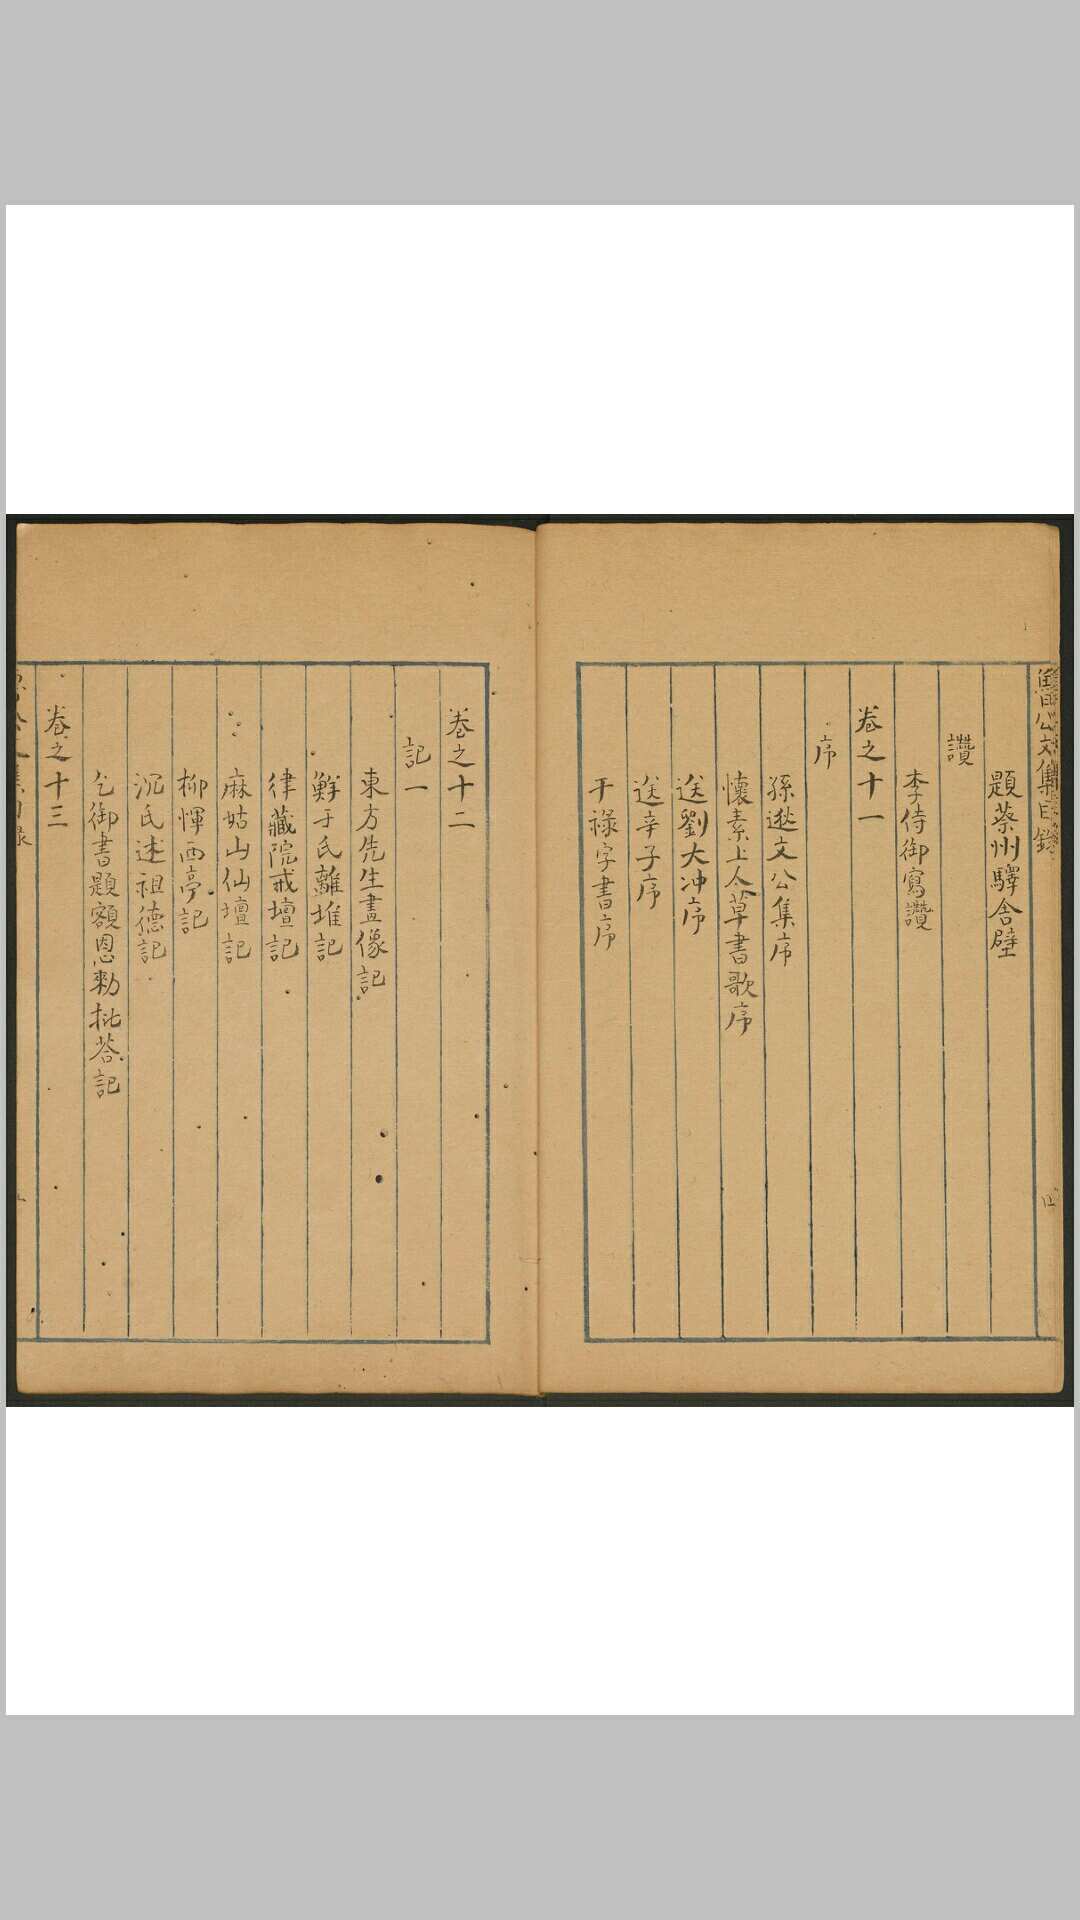 魯公文集目錄
題蔡州驛舍壁
讚
李侍御寫讚
卷之十一
序
孫逖文公集序
懷素上人草書歌序
送劉大冲序
送辛子序
干祿字書序
卷之十二
記一
東方先生畫像記
鮮于氏離堆記
律藏院戒壇記
麻姑山仙壇記
柳惲西亭記
沉氏述祖德記
乞御書題額恩勑批荅記
卷之十三